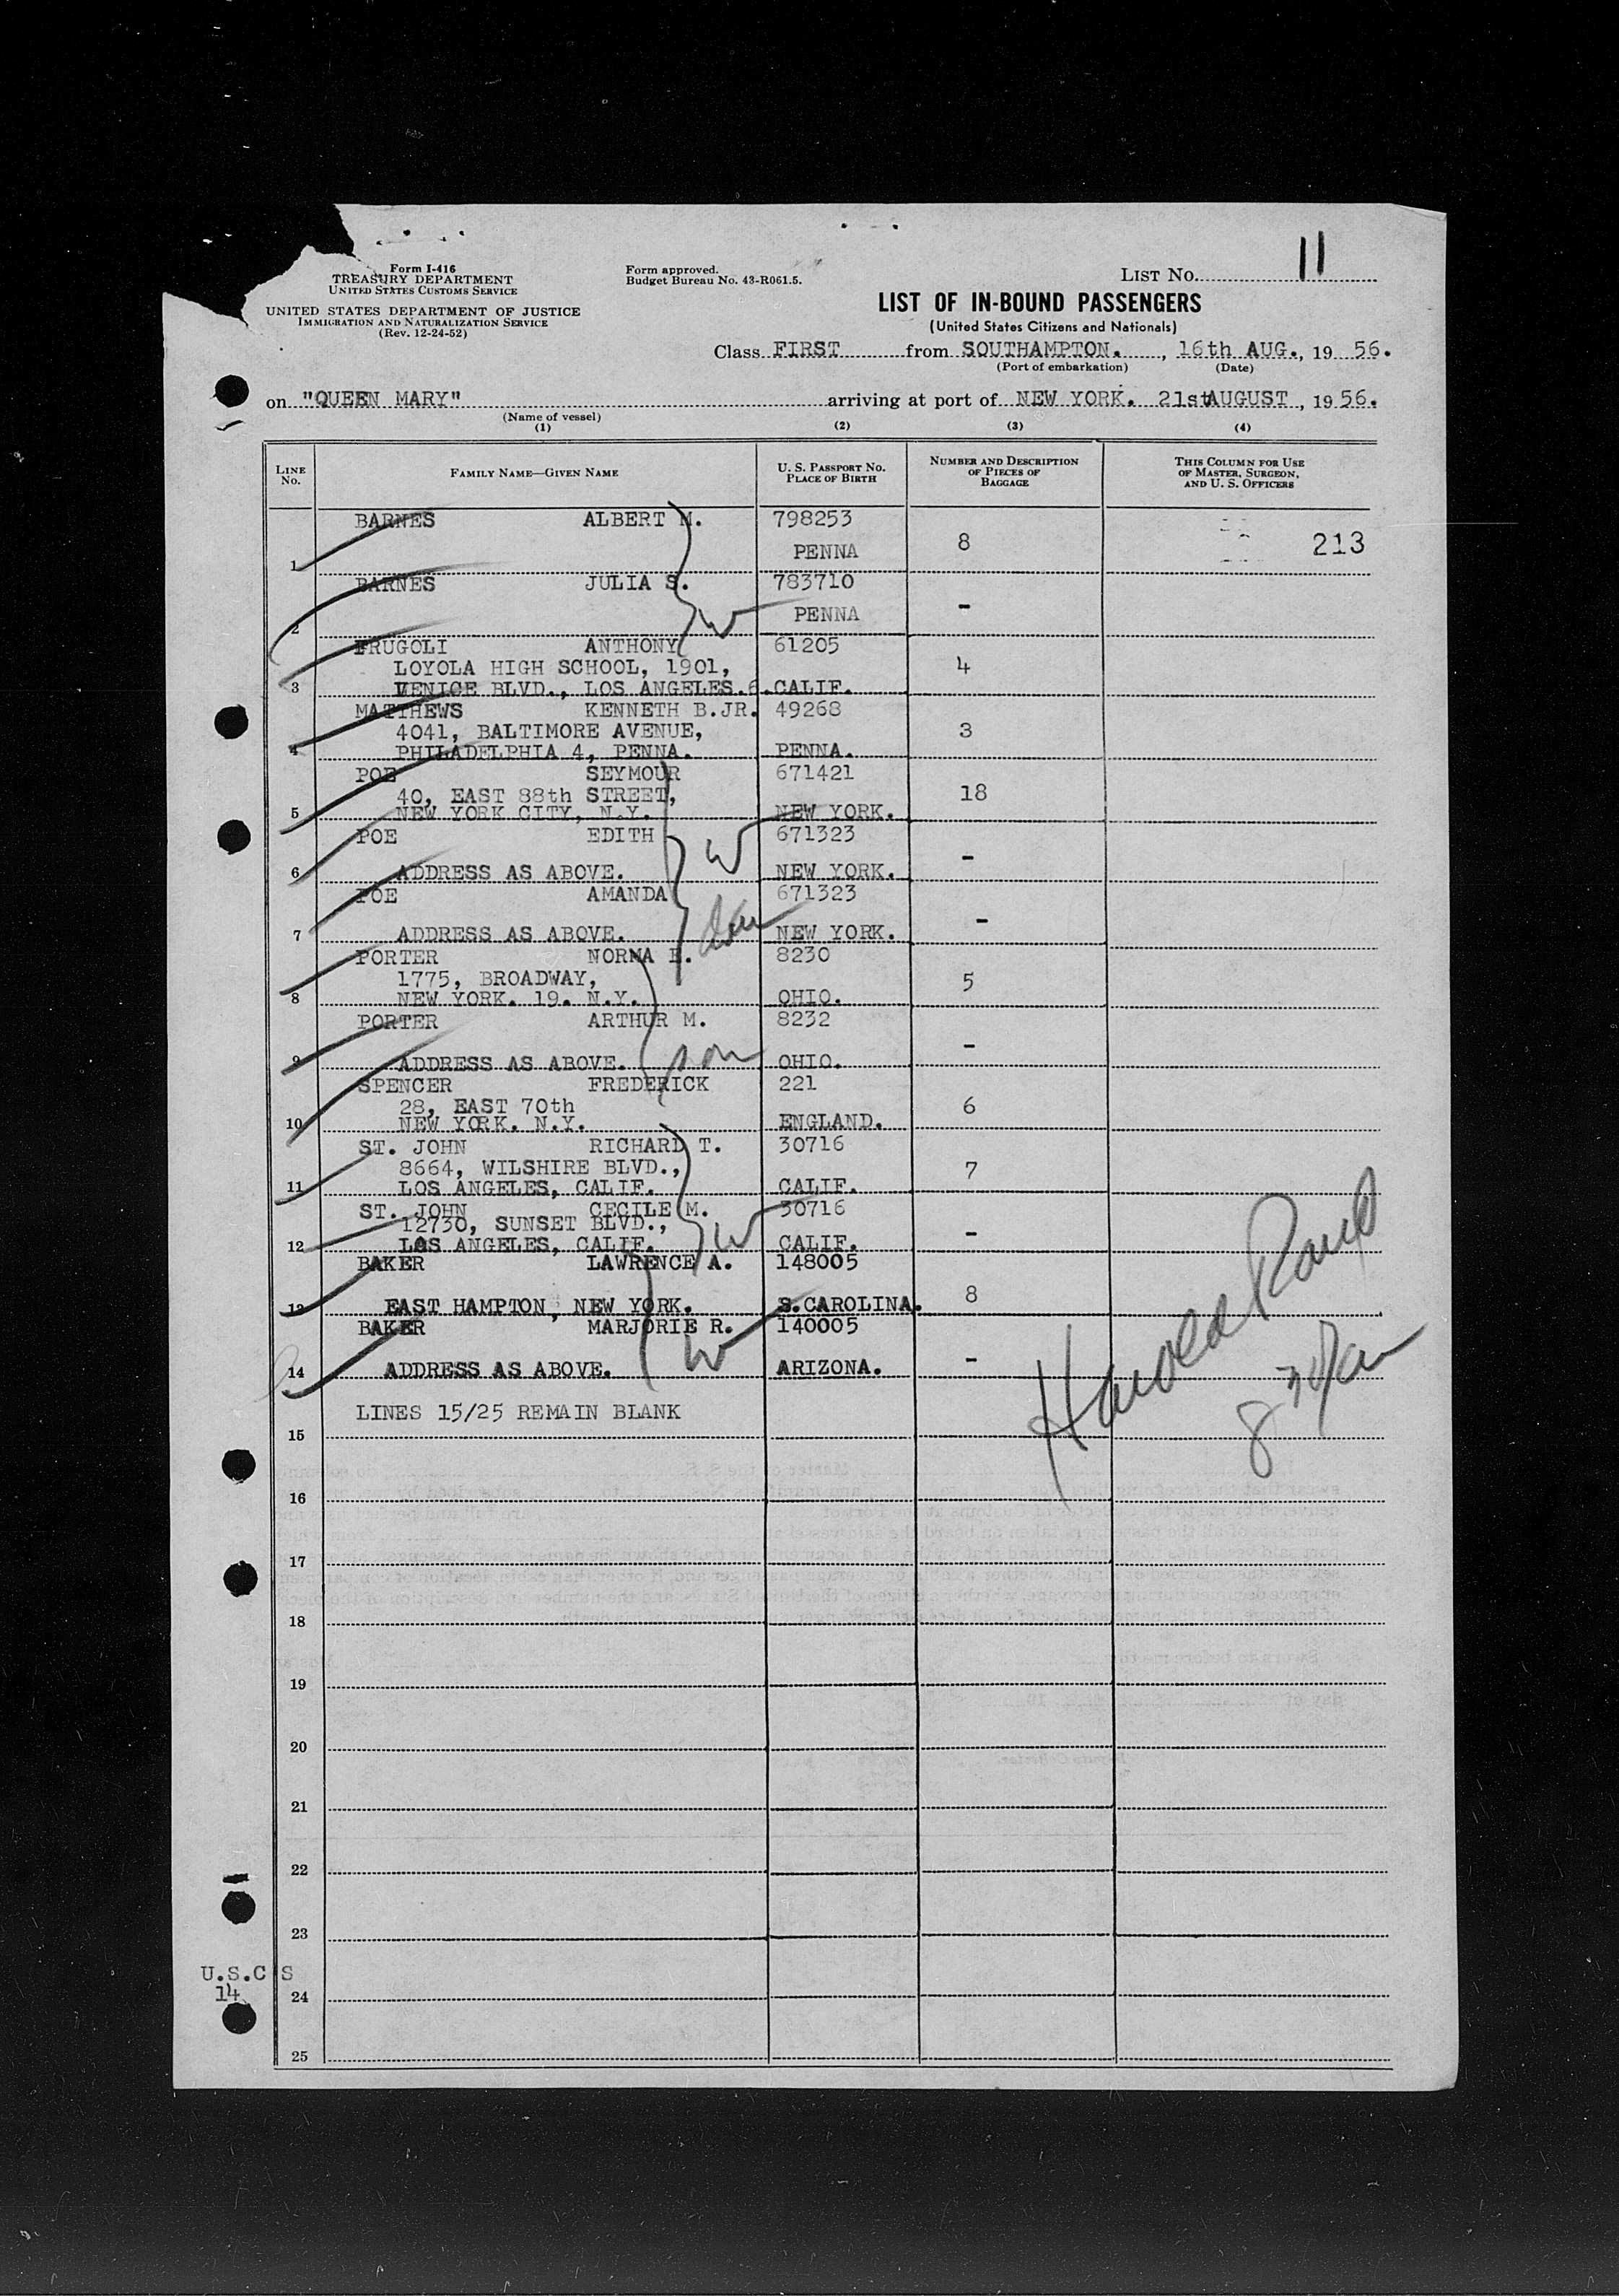 Form I-416
TREASURY DEPARTMENT
UNITED STATES CUSTOMS SERVICE
UNITED STATES DEPARTMENT OF JUSTICE
IMMIGRATION AND NATURALIZATION SERVICE
(Rev. 12-24-52)
Form approved.
Budget Bureau No. 43-R061.5.
LIST NO. 11
LIST OF IN-BOUND PASSENGERS
(United States Citizens and Nationals)
Class FIRST from SOUTHAMPTON. , 16th AUG., 19 56.
(Port of embarkation) (Date)
on "QUEEN MARY" arriving at port of NEW YORK. 21stAUGUST , 19 56.
(Name of vessel)
(1) (2) (3) (4)
LINE No. FAMILY NAME—GIVEN NAME U. S. PASSPORT NO. PLACE OF BIRTH NUMBER AND DESCRIPTION OF PIECES OF BAGGAGE THIS COLUMN FOR USE OF MASTER, SURGEON, AND U. S. OFFICERS
BARNES ALBERT M. 798253
1 PENNA 8 213
BARNES JULIA S. 783710
2 W PENNA -
FRUGOLI ANTHONY 61205
LOYOLA HIGH SCHOOL, 1901, 4
3 VENICE BLVD., LOS ANGELES.6.CALIF.
MATTHEWS KENNETH B.JR. 49268
4041, BALTIMORE AVENUE, 3
4 PHILADELPHIA 4, PENNA. PENNA.
POE SEYMOUR 671421
40, EAST 88th STREET, 18
5 NEW YORK CITY, N.Y. NEW YORK.
POE EDITH W 671323
6 ADDRESS AS ABOVE. NEW YORK. -
POE AMANDA 671323
7 ADDRESS AS ABOVE. dau NEW YORK. -
PORTER NORMA E. 8230
1775, BROADWAY, 5
8 NEW YORK. 19. N.Y. OHIO.
PORTER ARTHUR M. 8232
9 ADDRESS AS ABOVE. son OHIO. -
SPENCER FREDERICK 221
28, EAST 70th 6
10 NEW YORK. N.Y. ENGLAND.
ST. JOHN RICHARD T. 30716
8664, WILSHIRE BLVD., 7
11 LOS ANGELES, CALIF. CALIF.
ST. JOHN CECILE M. 30716
12730, SUNSET BLVD., W -
12 LOS ANGELES, CALIF. CALIF.
BAKER LAWRENCE A. 148005
13 EAST HAMPTON, NEW YORK. S.CAROLINA. 8
BAKER MARJORIE R. 140005
14 ADDRESS AS ABOVE. W ARIZONA. -
Harold
LINES 15/25 REMAIN BLANK
15
16
17
18
19
20
21
22
23
U.S.C S
14
24
25